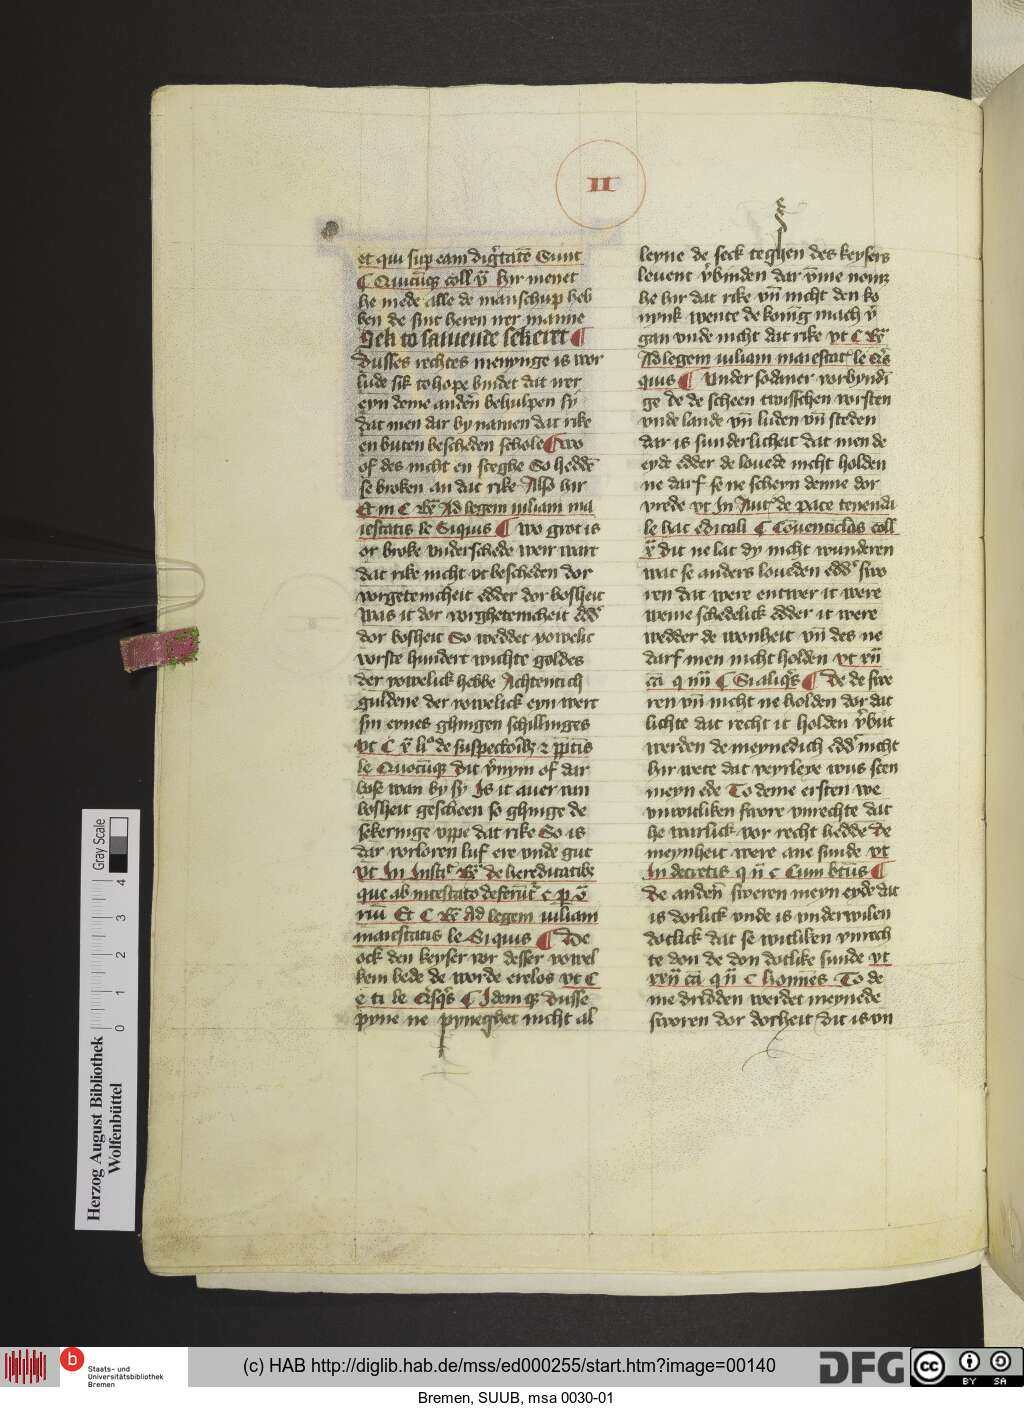 II
et qui sup eam dig̅tate̅ Sunt
¶ Quicu̅q; coll' v̅ Hir menet
he mede alle de manschup heb
ben de sint heren ner manne
Sek to samende sekeret ¶
Dusses rechtes menynge is wor
lude sik to hope bindet dat ner
eyn deme ande̅n behulpen sy
dat men dar by namen dat rike
en buten bescheden schole ¶ wo
of des nicht en sceghe So hedde̅
se broken an dat rike Also hir
Et in C Ad legem iuliam ma
iestatis le Siquis ¶ wo grot is
or broke underschede weir wart
dat rike nicht ut bescheden dor
vorgetenicheit edder dor bosheit
Was it dor vorghetenicheit edd'
dor bosheit So weddet yowelic
vorste hundert wichte goldes
der yowelick hebbe Achtentich
guldene der yowelick eyn wert
sin eynes ghingen schillinges
le Quocu̅q; Dit v̅nym of dar
bose wan by sy Is it auer van
bosheit gescheen so ghinge de
sekeringe uppe dat rike So is
dar vorloren luf ere unde gut
de hereditatib;
que ab intestato
Et C Ad legem iuliam
maiestatis le Siquis ¶ De
ock den keyser vor desser vowel
kem bede de worde erelos vt C
¶ Idem q; dusse
pyne ne pyneghet nicht al
leyne de seck teghen des keysers
levent v̅binden dar v̅me nomz
he hir dat rike vn̅ nicht den ko
nynk wente de konig mach v̅
gan unde nicht dat rike vt C
Ad legem iuliam maiestat' le
quis ¶ Under sodaner vorbyndi̅
ge de de scheen twisschen vorsten
unde lande vn̅ luden vn̅ steden
dar is sunderlicheit dat men de
eyde edder de louede nicht holden
ne darf se ne schern denne dor
vrede vt In Aut' de pace tenenda
le hac edictali ¶ Conuenticlas coll
v̅ Dit ne lat dy nicht wunderen
wat se anders loueden edd' swo
ren dat were entwer it were
weme schedelick edder it were
wedder de wonheit vn̅ des ne
darf men nicht holden vt
¶ De de swe
ren vn̅ nicht ne holden dor dat
lichte dat recht it holden v̅but
werden de meynedich edd' nicht
Hir wete dat veyrleye wus sten
meyn ede To deme ersten we
unwitliken swore unrechte dat
he warlick vor recht hedde De
meynheit were ane sunde vt
In decretis ¶
De anden̅ sweren meyn eyde dat
is dorlick unde is underwilen
dotlick dat se witliken unrech
te don de don dotlike sunde vt
To de
me dridden werdet meynede
sworen dor dorheit Dit is un
Gray Scale
0 1 2 3 4
Herzog August Bibliothek
Wolfenbüttel
b
Staats- und
Universitätsbibliothek
Bremen
(c) HAB http://diglib.hab.de/mss/ed000255/start.htm?image=00140
DFG
cc
BY SA
Bremen, SUUB, msa 0030-01